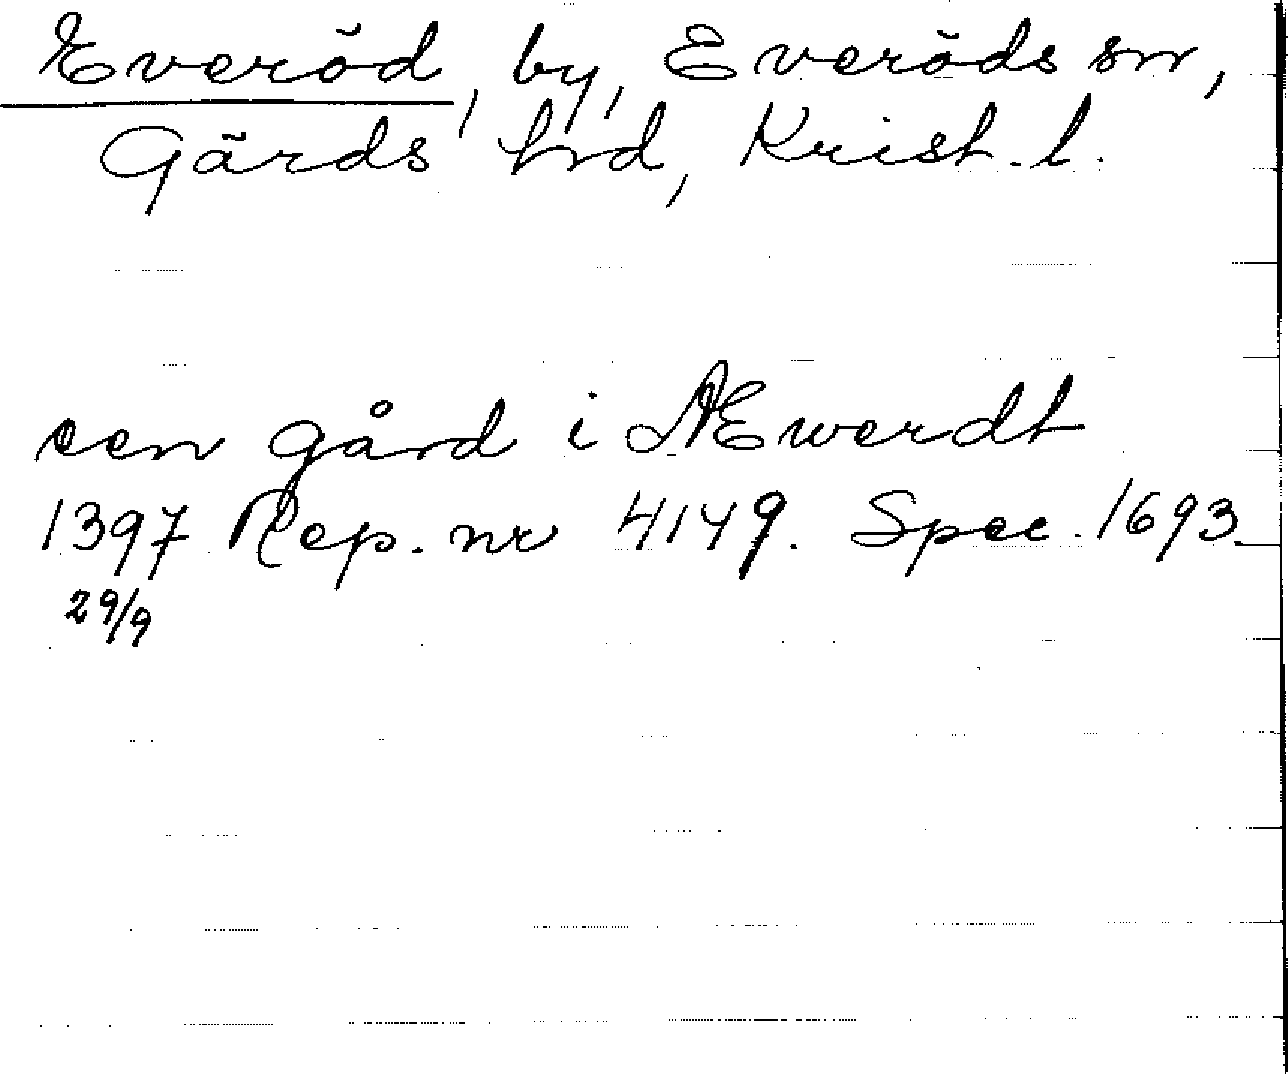 Everöd, by, Everöds sn,
Gärds hd, Krist. l.
een gård i Æwerdt
1397 Rep. nr 4149. Spec. 1693.
29/9